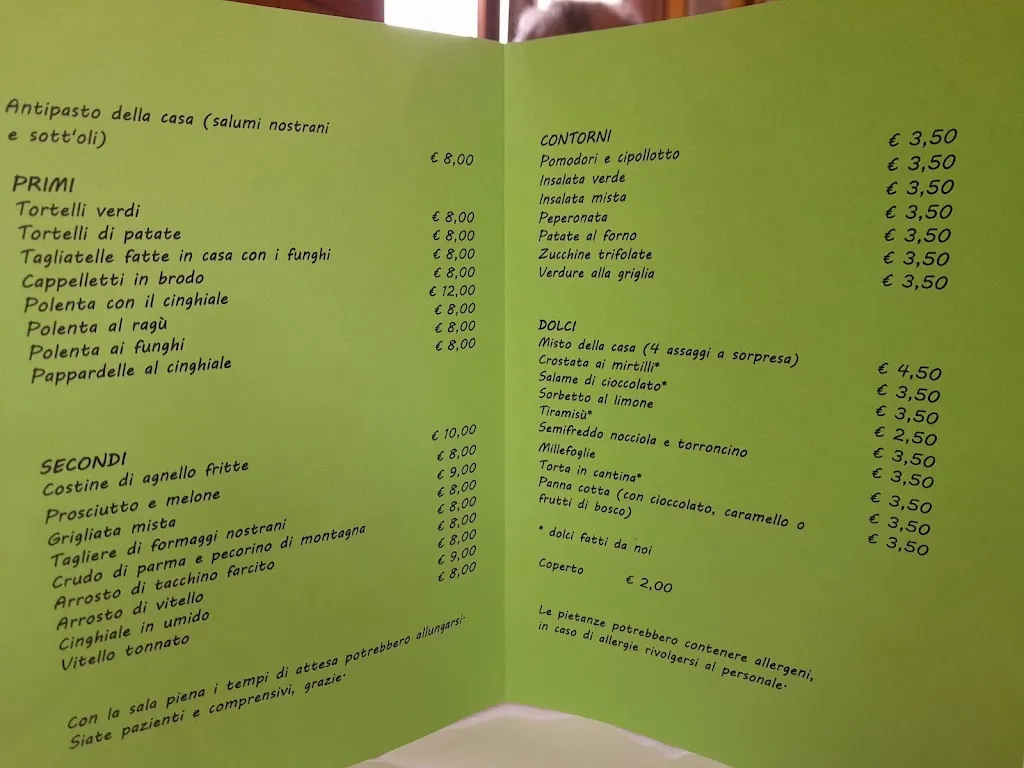 Antipasto della casa (salumi nostrani
e sott'oli) € 8,00
PRIMI
Tortelli verdi € 8,00
Tortelli di patate € 8,00
Tagliatelle fatte in casa con i funghi € 8,00
Cappelletti in brodo € 8,00
Polenta con il cinghiale € 12,00
Polenta al ragù € 8,00
Polenta ai funghi € 8,00
Pappardelle al cinghiale € 8,00
SECONDI
Costine di agnello fritte € 10,00
Prosciutto e melone € 8,00
Grigliata mista € 9,00
Tagliere di formaggi nostrani € 8,00
Crudo di parma e pecorino di montagna € 8,00
Arrosto di tacchino farcito € 8,00
Arrosto di vitello € 8,00
Cinghiale in umido € 9,00
Vitello tonnato € 8,00
Con la sala piena i tempi di attesa potrebbero allungarsi.
Siate pazienti e comprensivi, grazie.
CONTORNI
Pomodori e cipollotto € 3,50
Insalata verde € 3,50
Insalata mista € 3,50
Peperonata € 3,50
Patate al forno € 3,50
Zucchine trifolate € 3,50
Verdure alla griglia € 3,50
DOLCI
Misto della casa (4 assaggi a sorpresa) € 4,50
Crostata ai mirtilli* € 3,50
Salame di cioccolato* € 3,50
Sorbetto al limone € 2,50
Tiramisù* € 3,50
Semifreddo nocciola e torroncino € 3,50
Millefoglie € 3,50
Torta in cantina* € 3,50
Panna cotta (con cioccolato, caramello o € 3,50
frutti di bosco)
* dolci fatti da noi
Coperto € 2,00
Le pietanze potrebbero contenere allergeni,
in caso di allergie rivolgersi al personale.